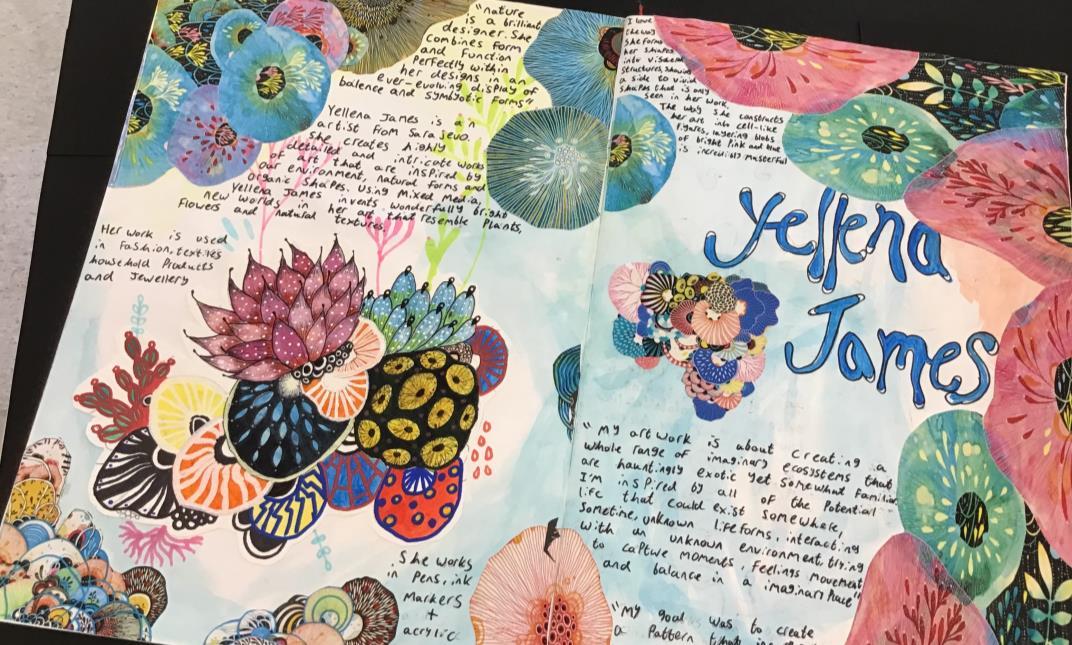 "nature
is a brilliant
designer. She
combines form
and Function
Perfectly within
her designs in an
ever-evolving display of
balence and symbiotic forms"
Yellena James is an
artist from Sarajevo.
She creates highly
detailed and intricate works
of art that are inspired by
our environment, natural forms and
organic shapes. Using Mixed Media,
Yellena James invents wonderfully bright
new worlds in her art that resemble Plants,
Flowers and natural textures.
Her work is used
in Fashion, textiles
household Products
and Jewellery
She works
in Pens, ink
Markers
+
acrylic.
I love
the way
She forms
her shapes
into visual
structures, showing
a side to vivid
shapes that is only
seen in her work.
The way she constructs
her art into cell-like
figures, layering blobs
of bright Pink and blue
is incredibly masterful
Yellena
James
"My artwork is about creating a
whole range of imaginary ecosystems that
are hauntingly exotic yet somewhat familiar
I'm inspired by all of the Potential
life that could exist somewhere,
sometime, unknown lifeforms, interacting
with an unknown environment, trying
to capture moments, feelings movement
and balance in a imaginary Place"
"My goal was to create
a Pattern